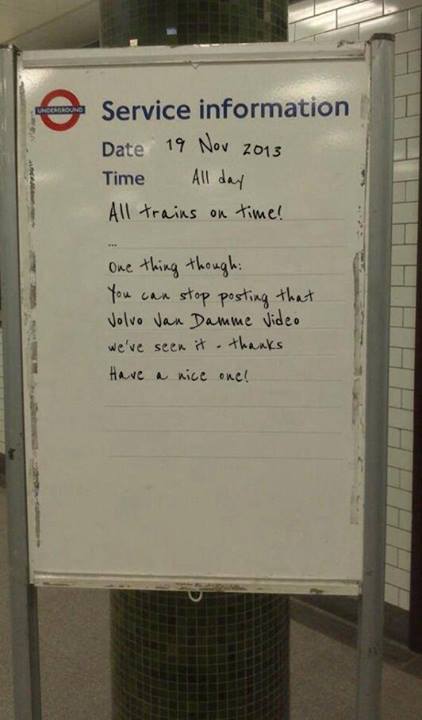 UNDERGROUND
Service information
Date 19 Nov 2013
Time All day
All trains on time!
...
One thing though:
You can stop posting that
Volvo Van Damme Video
we've seen it - thanks
Have a nice one!